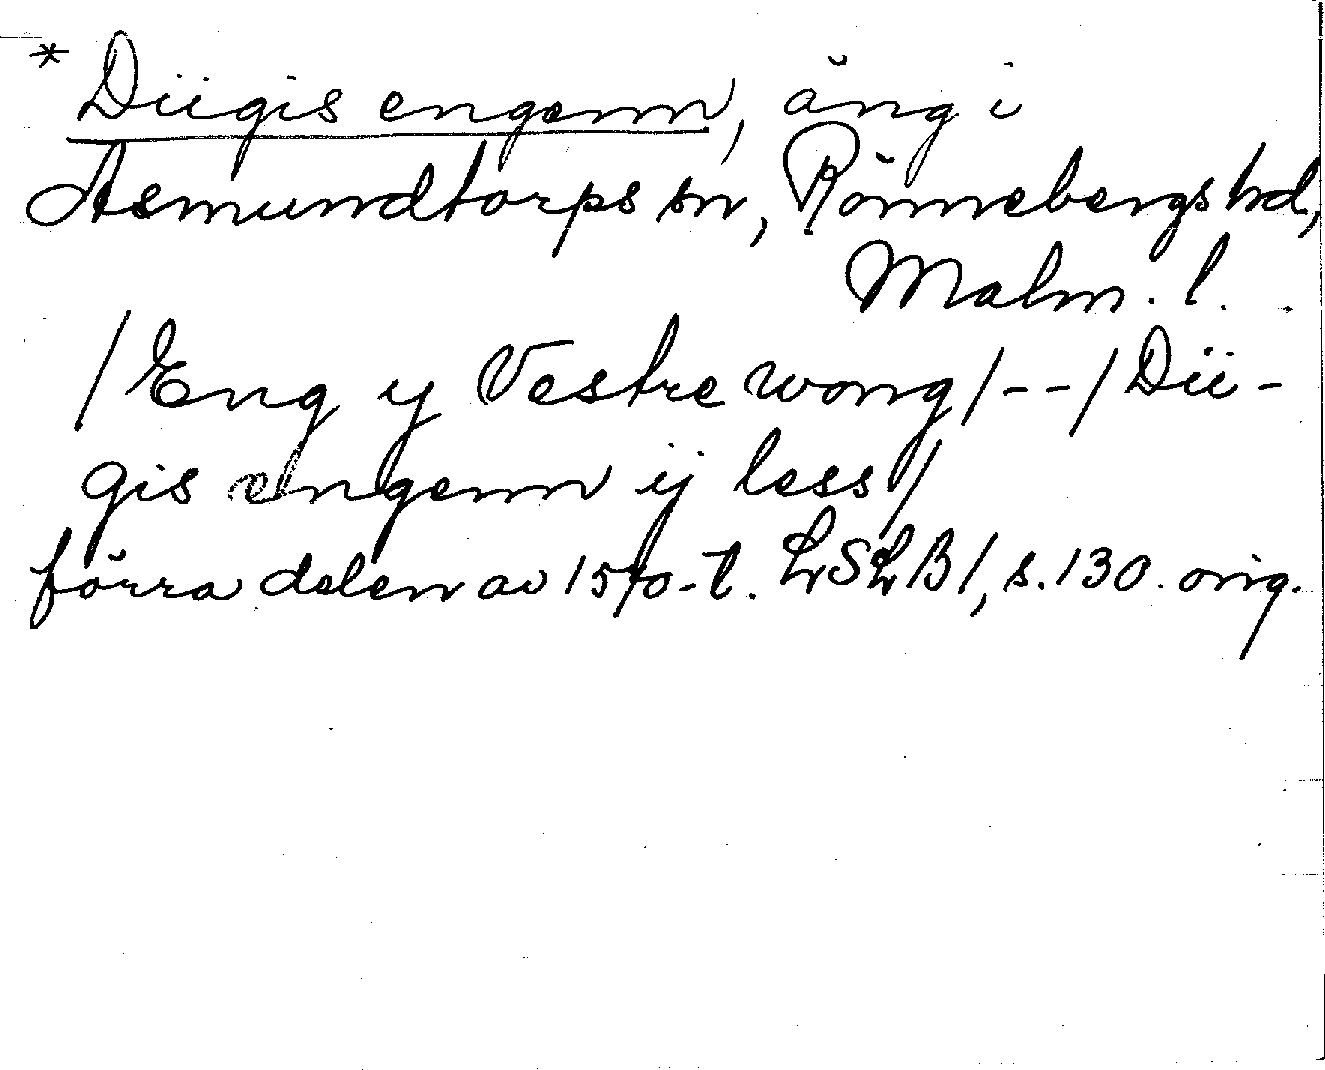 * Diigis engenn, äng i
Asmundtorps sn, Rönnebergs hd,
Malm. l.
/Eng y Vestre wong/--/Dii-
gis engenn ij less/
förra delen av 1570-t. LSLB 1, s. 130. orig.